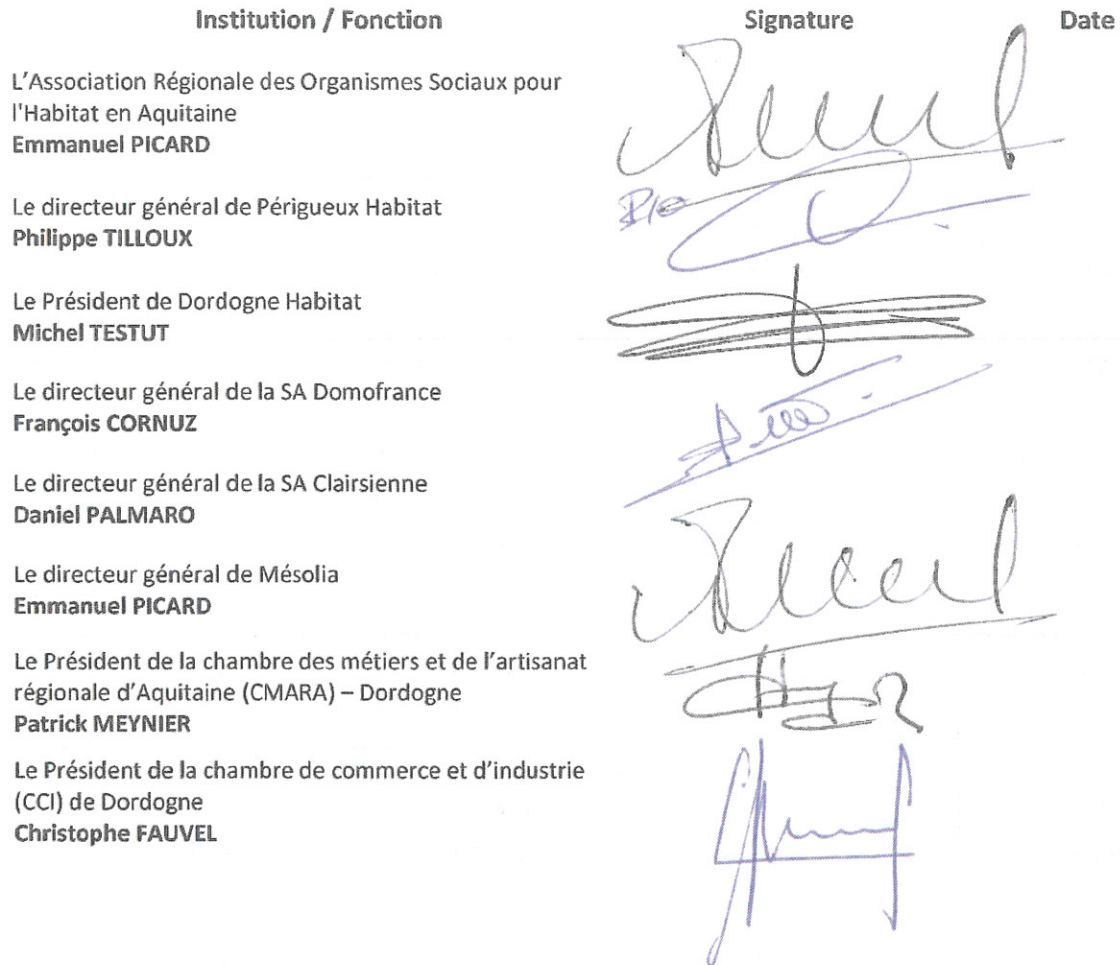 Institution / Fonction Signature Date
L'Association Régionale des Organismes Sociaux pour
l'Habitat en Aquitaine
Emmanuel PICARD
Le directeur général de Périgueux Habitat
Philippe TILLOUX
Le Président de Dordogne Habitat
Michel TESTUT
Le directeur général de la SA Domofrance
François CORNUZ
Le directeur général de la SA Clairsienne
Daniel PALMARO
Le directeur général de Mésolia
Emmanuel PICARD
Le Président de la chambre des métiers et de l'artisanat
régionale d'Aquitaine (CMARA) – Dordogne
Patrick MEYNIER
Le Président de la chambre de commerce et d'industrie
(CCI) de Dordogne
Christophe FAUVEL